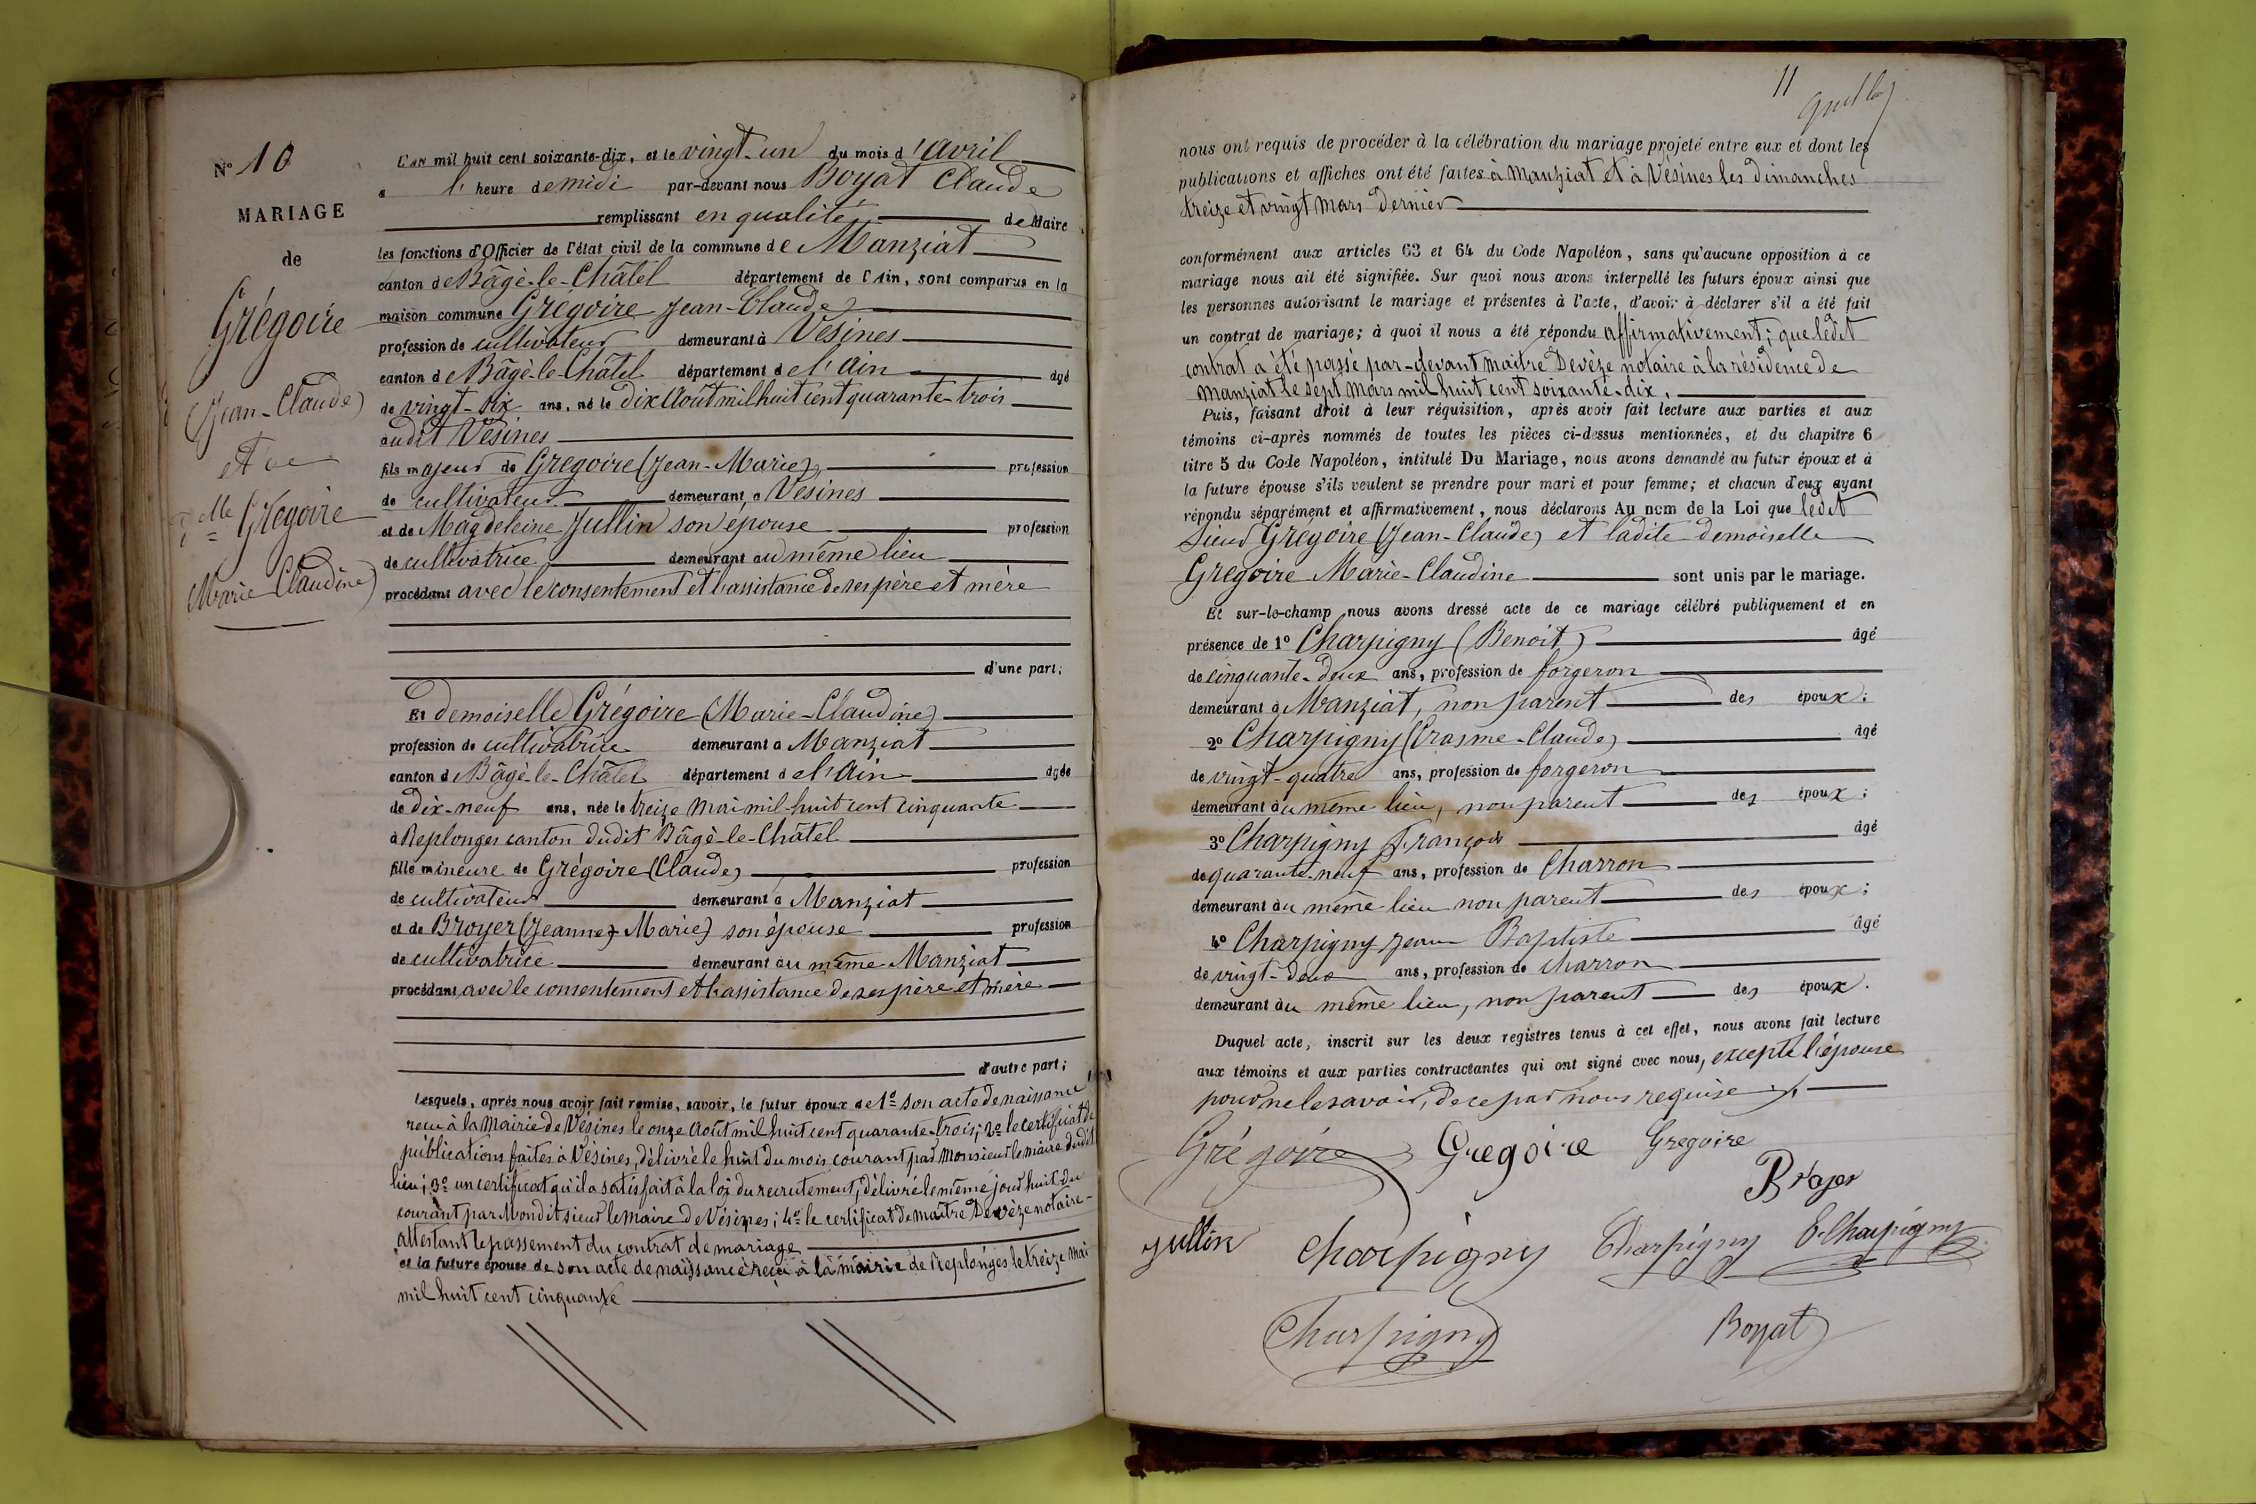 N° 10
MARIAGE
de
Grégoire
(Jean-Claude)
et de
Delle Grégoire
Marie Claudine)
L'an mil huit cent soixante-dix, et le vingt-un du mois d'avril
a l'heure de midi par-devant nous Boyat Claude
remplissant en qualité de Maire
les fonctions d'Officier de l'état civil de la commune de Manziat
canton de Bâgé-le-Châtel département de l'Ain, sont comparus en la
maison commune Grégoire Jean-Claude
profession de cultivateur demeurant à Vésines
canton de Bâgé-le-Châtel département de l'Ain âgé
de vingt-six ans, né le dix Août mil huit cent quarante-trois
audit Vésines
fils majeur de Grégoire (Jean-Marie) profession
de cultivateur demeurant a Vésines
et de Magdeleine Jullin son épouse profession
de cultivatrice demeurant au même lieu
procédant avec le consentement et l'assistance de ses père et mère
d'une part;
Et demoiselle Grégoire (Marie-Claudine)
profession de cultivatrice demeurant a Manziat
canton de Bâgé-le-Châtel département de l'Ain âgée
de dix-neuf ans, née le treize Mai mil-huit cent cinquante
à Replonges canton dudit Bâgé-le-Châtel
fille mineure de Grégoire (Claude) profession
de cultivateur demeurant a Manziat
et de Broyer (Jeanne-Marie) son épouse profession
de cultivatrice demeurant au même Manziat
procédant avec le consentement et l'assistance de ses père et mère
d'autre part;
Lesquels, après nous avoir fait remise, savoir, le futur époux de 1° son acte de naissance
reçu à la Mairie de Vésines le onze Août mil huit cent quarante-trois; 2° le certificat de
publications faites à Vésines, délivré le huit du mois courant par Monsieur le maire dudit
lieu; 3° un certificat qu'il a satisfait à la loi du recrutement, délivré le même jour huit du
courant par Mondit sieur le Maire de Vésines; 4° le certificat de maître Devèze notaire-
attestant le passement du contrat de mariage
et la future épouse de son acte de naissance reçu à la mairie de Replonges le treize Mai
mil huit cent cinquante
11
nous ont requis de procéder à la célébration du mariage projeté entre eux et dont les
publications et affiches ont été faites à Manziat et à Vésines les dimanches
treize et vingt Mars dernier
conformément aux articles 63 et 64 du Code Napoléon, sans qu'aucune opposition à ce
mariage nous ait été signifiée. Sur quoi nous avons interpellé les futurs époux ainsi que
les personnes autorisant le mariage et présentes à l'acte, d'avoir à déclarer s'il a été fait
un contrat de mariage; à quoi il nous a été répondu affirmativement; que ledit
contrat a été passé par-devant maître Devèze notaire à la résidence de
Manziat le sept Mars mil huit cent soixante-dix.
Puis, faisant droit à leur réquisition, après avoir fait lecture aux parties et aux
témoins ci-après nommés de toutes les pièces ci-dessus mentionnées, et du chapitre 6
titre 5 du Code Napoléon, intitulé Du Mariage, nous avons demandé au futur époux et à
la future épouse s'ils veulent se prendre pour mari et pour femme; et chacun d'eux ayant
répondu séparément et affirmativement, nous déclarons Au nom de la Loi que ledit
Sieur Grégoire (Jean-Claude) et ladite demoiselle
Grégoire Marie-Claudine sont unis par le mariage.
Et sur-le-champ nous avons dressé acte de ce mariage célébré publiquement et en
présence de 1° Charpigny (Benoit) âgé
de cinquante-deux ans, profession de forgeron
demeurant à Manziat, non parent des époux;
2° Charpigny (Erasme-Claude) âgé
de vingt-quatre ans, profession de forgeron
demeurant au même lieu, non parent des époux;
3° Charpigny François âgé
de quarante-neuf ans, profession de Charron
demeurant au même lieu non parent des époux;
4° Charpigny Jean Baptiste âgé
de vingt-deux ans, profession de charron
demeurant au même lieu, non parent des époux.
Duquel acte, inscrit sur les deux registres tenus à cet effet, nous avons fait lecture
aux témoins et aux parties contractantes qui ont signé avec nous, excepté l'épouse
pour ne le savoir, de ce par nous requise
Grégoire Gregoire Gregoire
Broyer
Jullin Charpigny Charpigny E. Charpigny
Charpigny Boyat